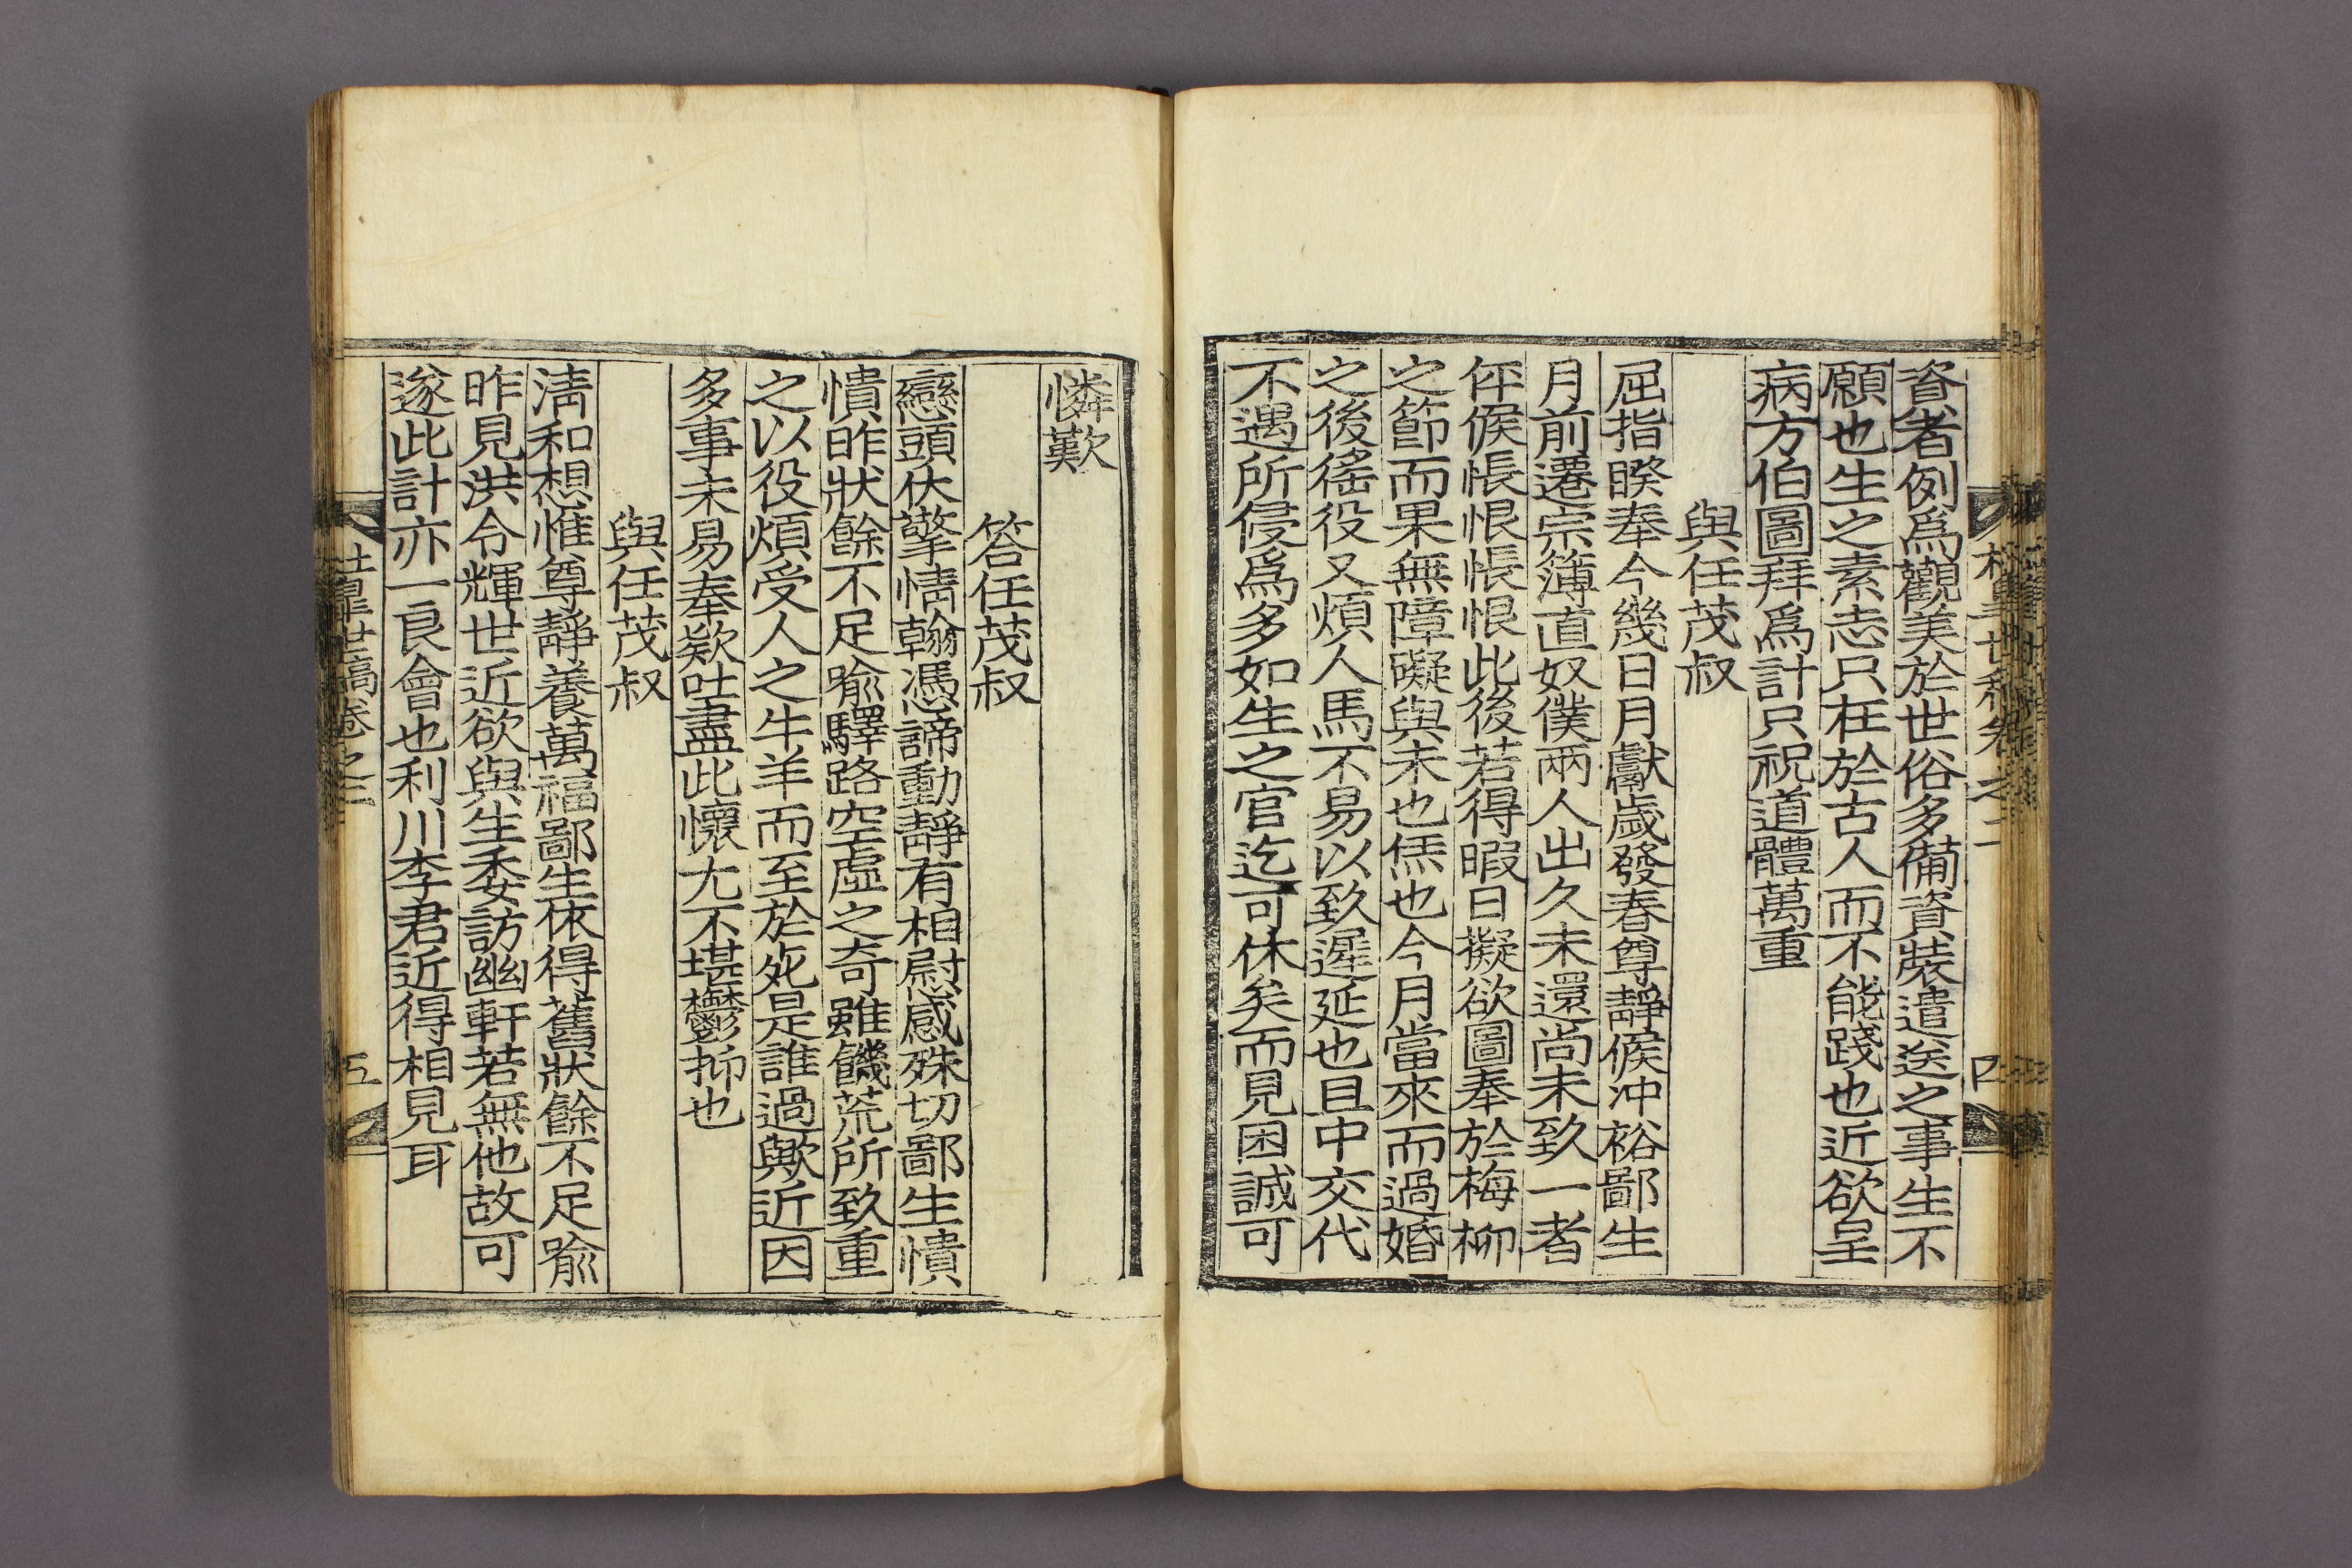 資者例爲觀美於世俗多備資裝遣送之事生不
願也生之素志只在於古人而不能踐也近欲呈
病方伯圖拜爲計只祝道體萬重
與任茂叔
屈指睽奉今幾日月獻歲發春尊靜候冲裕鄙生
月前遷宗簿直奴僕兩人出久未還尚未致一者
伻候悵恨悵恨此後若得暇日擬欲圖奉於梅柳
之節而果無障礙與未也恁也今月當來而過婚
之後徭役又煩人馬不易以致遲延也且中交代
不遇所侵爲多如生之官迄可休矣而見困誠可
憐歎
答任茂叔
戀頭伏擎情翰憑諦動靜有相慰感殊切鄙生憒
憒昨狀餘不足喩驛路空虛之奇雖饑荒所致重
之以役煩受人之牛羊而至於死是誰過歟近因
多事未易奉欵吐盡此懷尤不堪鬱抑也
與任茂叔
淸和想惟尊靜養萬福鄙生依得舊狀餘不足喩
昨見洪令輝世近欲與生委訪幽軒若無他故可
遂此計亦一良會也利川李君近得相見耳
世稿卷之二
五
世稿卷之二
四